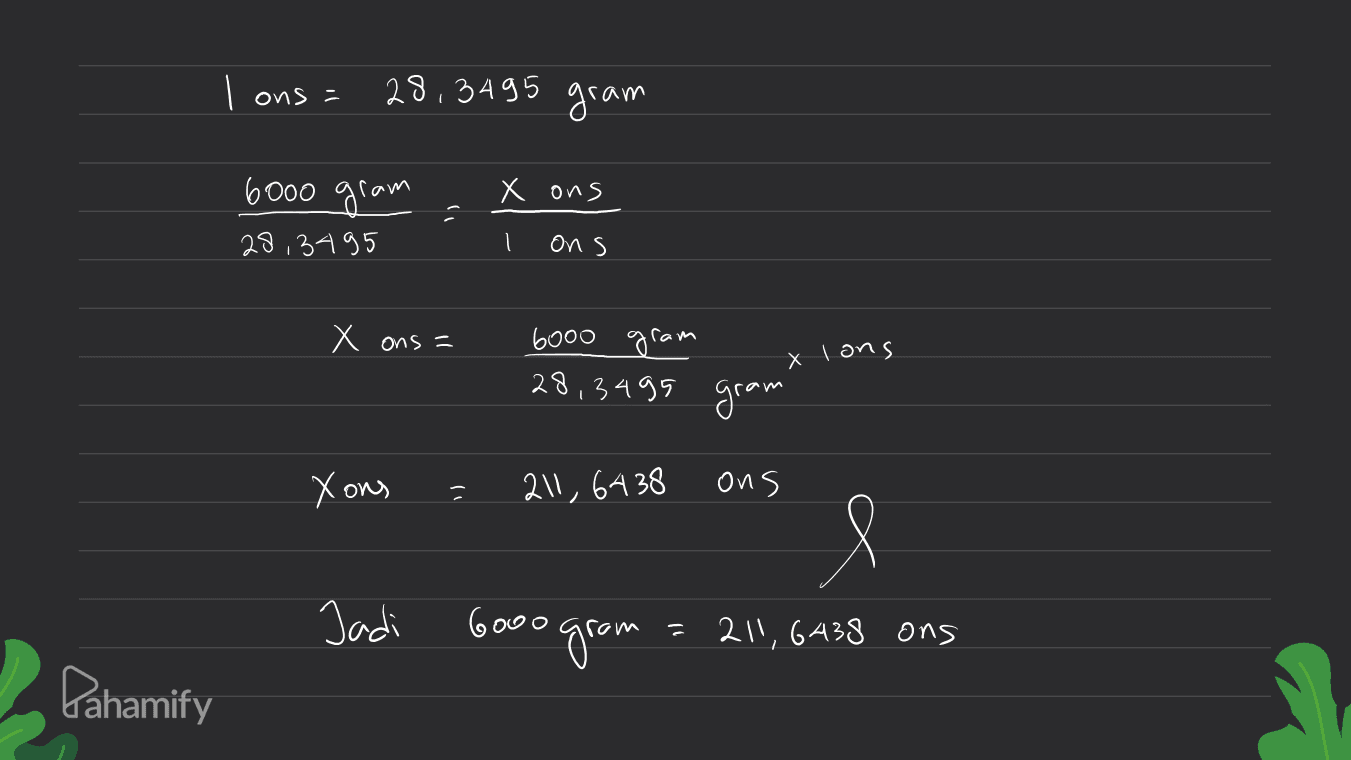 1 ons = 28,3495 gram
6000 gram = X ons
28,3495 1 ons
X ons = 6000 gram x 1 ons
28,3495 gram
X ons = 211,6438 ons
Jadi 6000 gram = 211,6438 ons
Pahamify